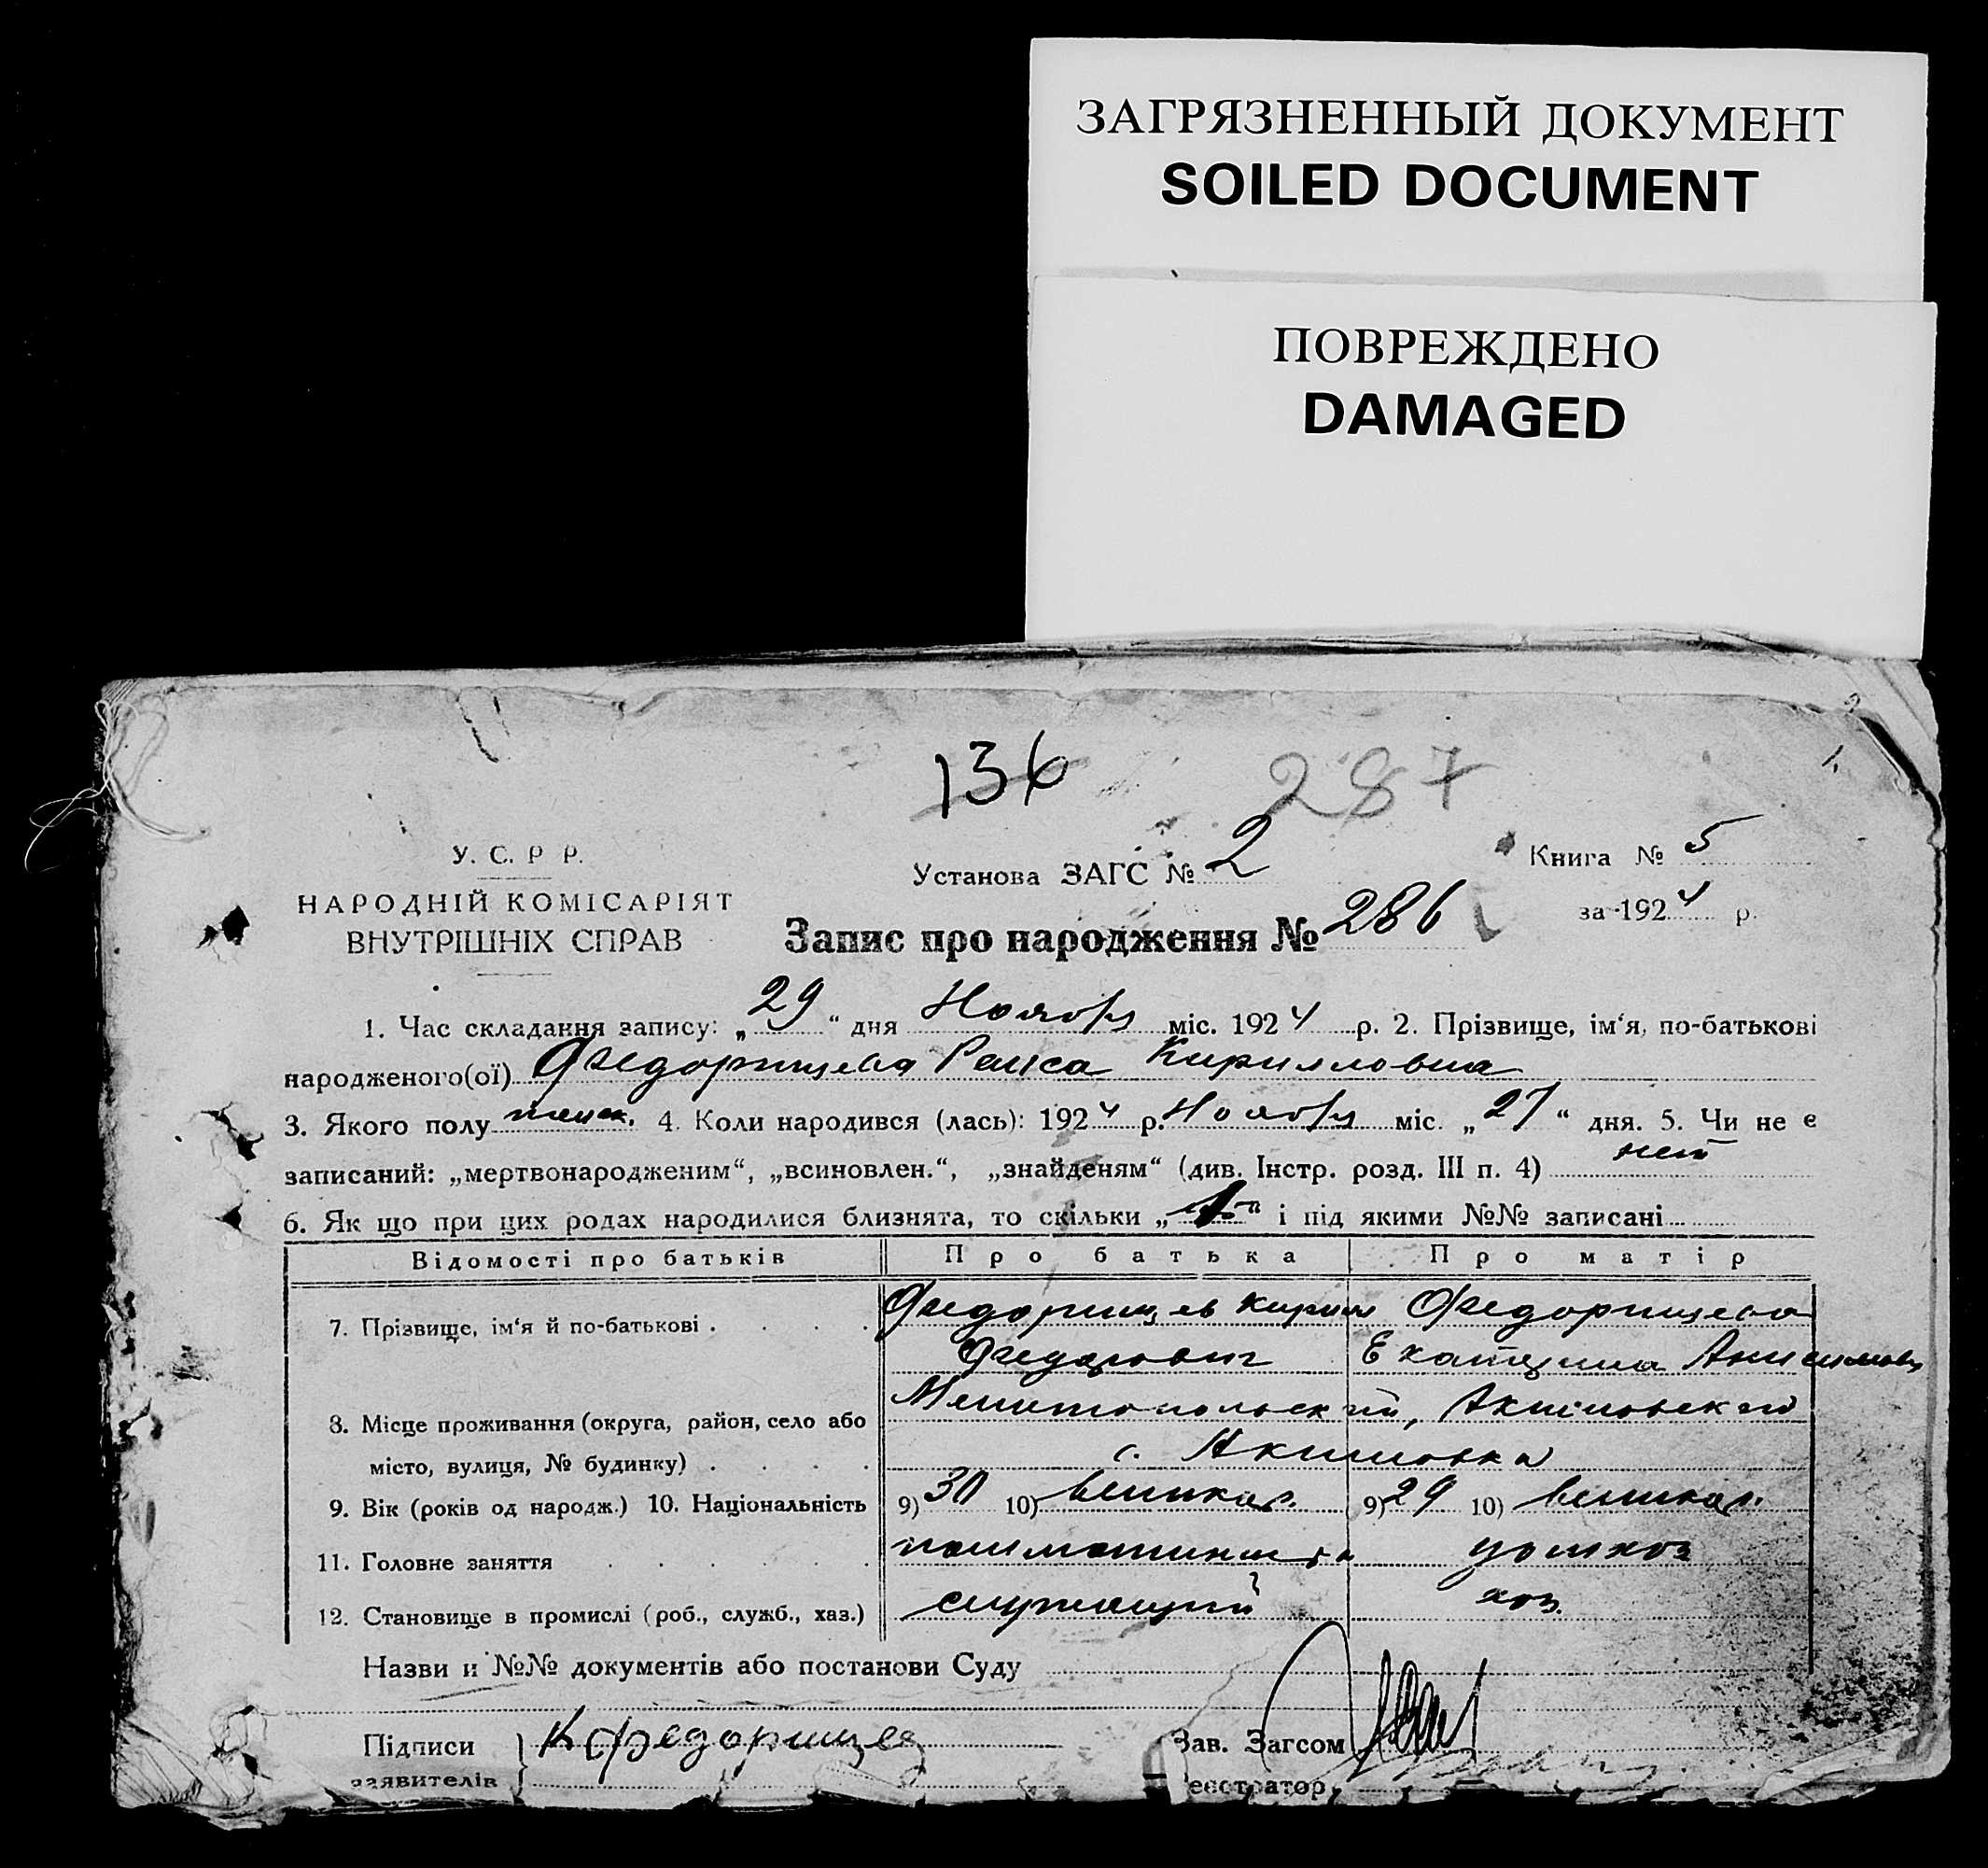 ЗАГРЯЗНЕННЫЙ ДОКУМЕНТ
SOILED DOCUMENT
ПОВРЕЖДЕНО
DAMAGED
1.
136 287
У. С. Р Р.
НАРОДНІЙ КОМІСАРІЯТ
ВНУТРІШНІХ СПРАВ
Установа ЗАГС № 2
Книга № 5
за 1924 р.
Запис про народження № 286
1. Час складання запису: „29“ дня Ноября міс. 1924 р. 2. Прізвище, ім‘я, по-батькові
народженого(ої) Федорищева Раиса Кирилловна
3. Якого полу женск. 4. Коли народився (лась): 1924 р. Ноября міс. „27“ дня. 5. Чи не є
записаний: „мертвонародженим“, „всиновлен.“, „знайденям“ (див. Інстр. розд. III п. 4) нет
6. Як що при цих родах народилися близнята, то скільки „ “ і під якими №№ записані
Відомості про батьків Про батька Про матір
7. Прізвище, ім‘я й по-батькові . . . . Федорищев Кирил Федорищева
Федорович Екатерина Анисимовна
8. Місце проживання (округа, район, село або Мелитопольский, Акимовский
місто, вулиця, № будинку) . . . . с. Акимовка
9. Вік (років од народж.) 10. Національність 9) 30 10) великор. 9) 29 10) великор.
11. Головне заняття . . . . . домхоз
12. Становище в промислі (роб., служб., хаз.) служащий хоз.
Назви и №№ документів або постанови Суду
Підписи
заявителів
К Федорищев
Зав. Загсом
Реєстратор